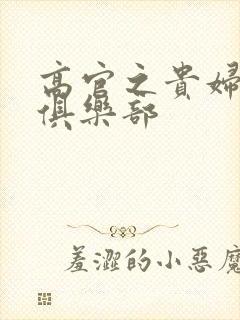 高官之貴婦
俱樂部
羞澀的小惡魔